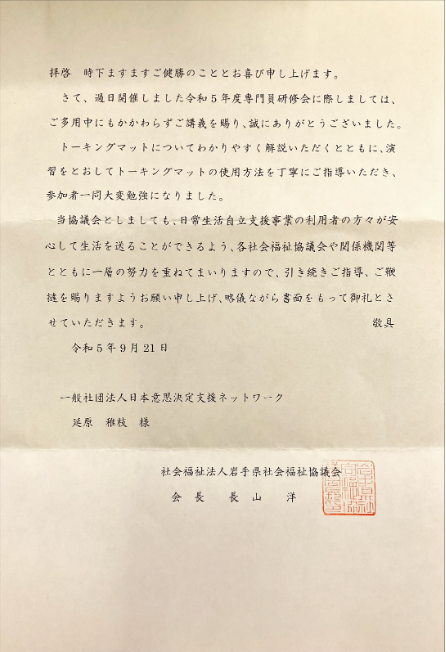 拝啓　時下ますますご健勝のこととお喜び申し上げます。
さて、過日開催しました令和５年度専門員研修会に際しましては、
ご多用中にもかかわらずご講義を賜り、誠にありがとうございました。
トーキングマットについてわかりやすく解説いただくとともに、演
習をとおしてトーキングマットの使用方法を丁寧にご指導いただき、
参加者一同大変勉強になりました。
当協議会としましても、日常生活自立支援事業の利用者の方々が安
心して生活を送ることができるよう、各社会福祉協議会や関係機関等
とともに一層の努力を重ねてまいりますので、引き続きご指導、ご鞭
撻を賜りますようお願い申し上げ、略儀ながら書面をもって御礼とさ
せていただきます。　敬具
令和５年９月21日
一般社団法人日本意思決定支援ネットワーク
延原　稚枝　様
社会福祉法人岩手県社会福祉協議会
会長　長山　洋